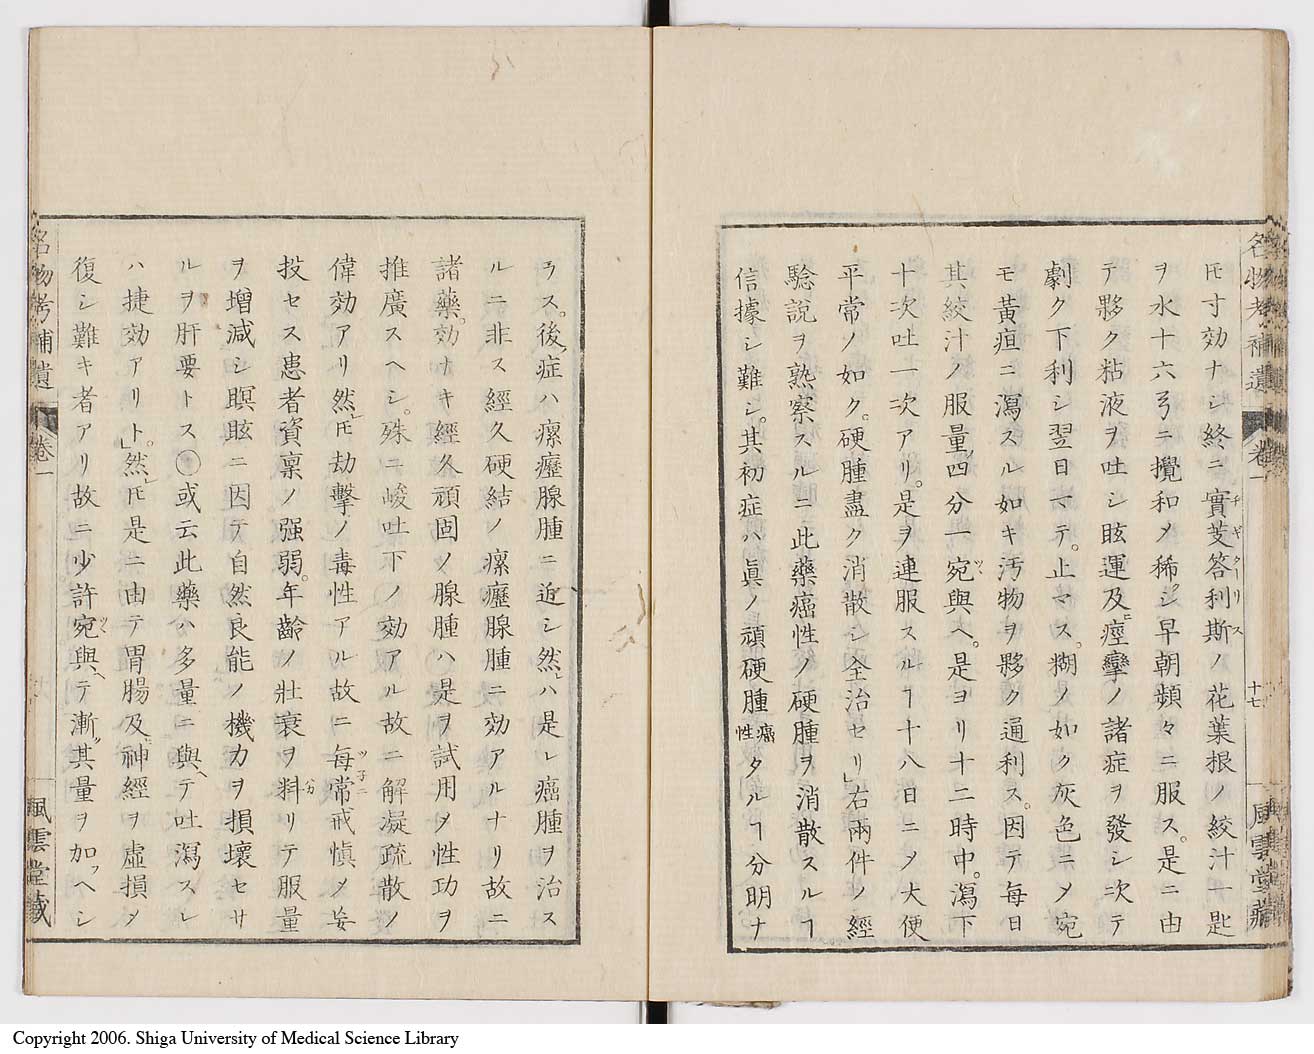 名物考補遺 卷一 十七 風雲堂藏
𪜈寸効ナシ終ニ實芰答利斯ノ花葉根ノ絞汁一匙
チギターリス
ヲ水十六弓ニ攪和メ稀シ早朝頻々ニ服ス。是ニ由
テ夥ク粘液ヲ吐シ眩運及ヒ痙攣ノ諸症ヲ發シ次テ
劇ク下利シ翌日マテ。止マス。糊ノ如ク灰色ニメ宛
モ黃疸ニ瀉スル如キ汚物ヲ夥ク通利ス。因テ每日
其絞汁ノ服量ノ四分一宛ツ與ヘ。是ヨリ十二時中。瀉下
十次吐一次アリ。是ヲ連服スルヿ十八日ニメ大便
平常ノ如ク。硬腫盡ク消散シ全治セリ」右兩件ノ經
驗說ヲ熟察スルニ此藥癌性ノ硬腫ヲ消散スルヿ
信據シ難シ。其初症ハ眞ノ頑硬腫癌性タルヿ分明ナ
ラス。後症ハ瘰癧腺腫ニ近シ然ハ是レ癌腫ヲ治ス
ルニ非ス經久硬結ノ瘰癧腺腫ニ効アルナリ故ニ
諸藥。効ナキ經久頑固ノ腺腫ハ是ヲ試用メ性功ヲ
推廣スヘシ。殊ニ峻吐下ノ効アル故ニ解凝疏散ノ
偉効アリ然𪜈劫擊ノ毒性アル故ニ每常ツ子ニ戒愼メ妄
投セス患者資稟ノ强弱。年齡ノ壯衰ヲ料分リテ服量
ヲ增減シ瞑眩ニ因テ自然良能ノ機力ヲ損壞セサ
ルヲ肝要トス〇或云此藥ハ多量ニ與ヘテ吐瀉スレ
ハ捷効アリト。」然𪜈是ニ由テ胃腸及神經ヲ虛損メ
復シ難キ者アリ故ニ少許宛ツ與ヘテ漸ツ其量ヲ加ッヘシ
名物考補遺 卷一 風雲堂藏
Copyright 2006. Shiga University of Medical Science Library